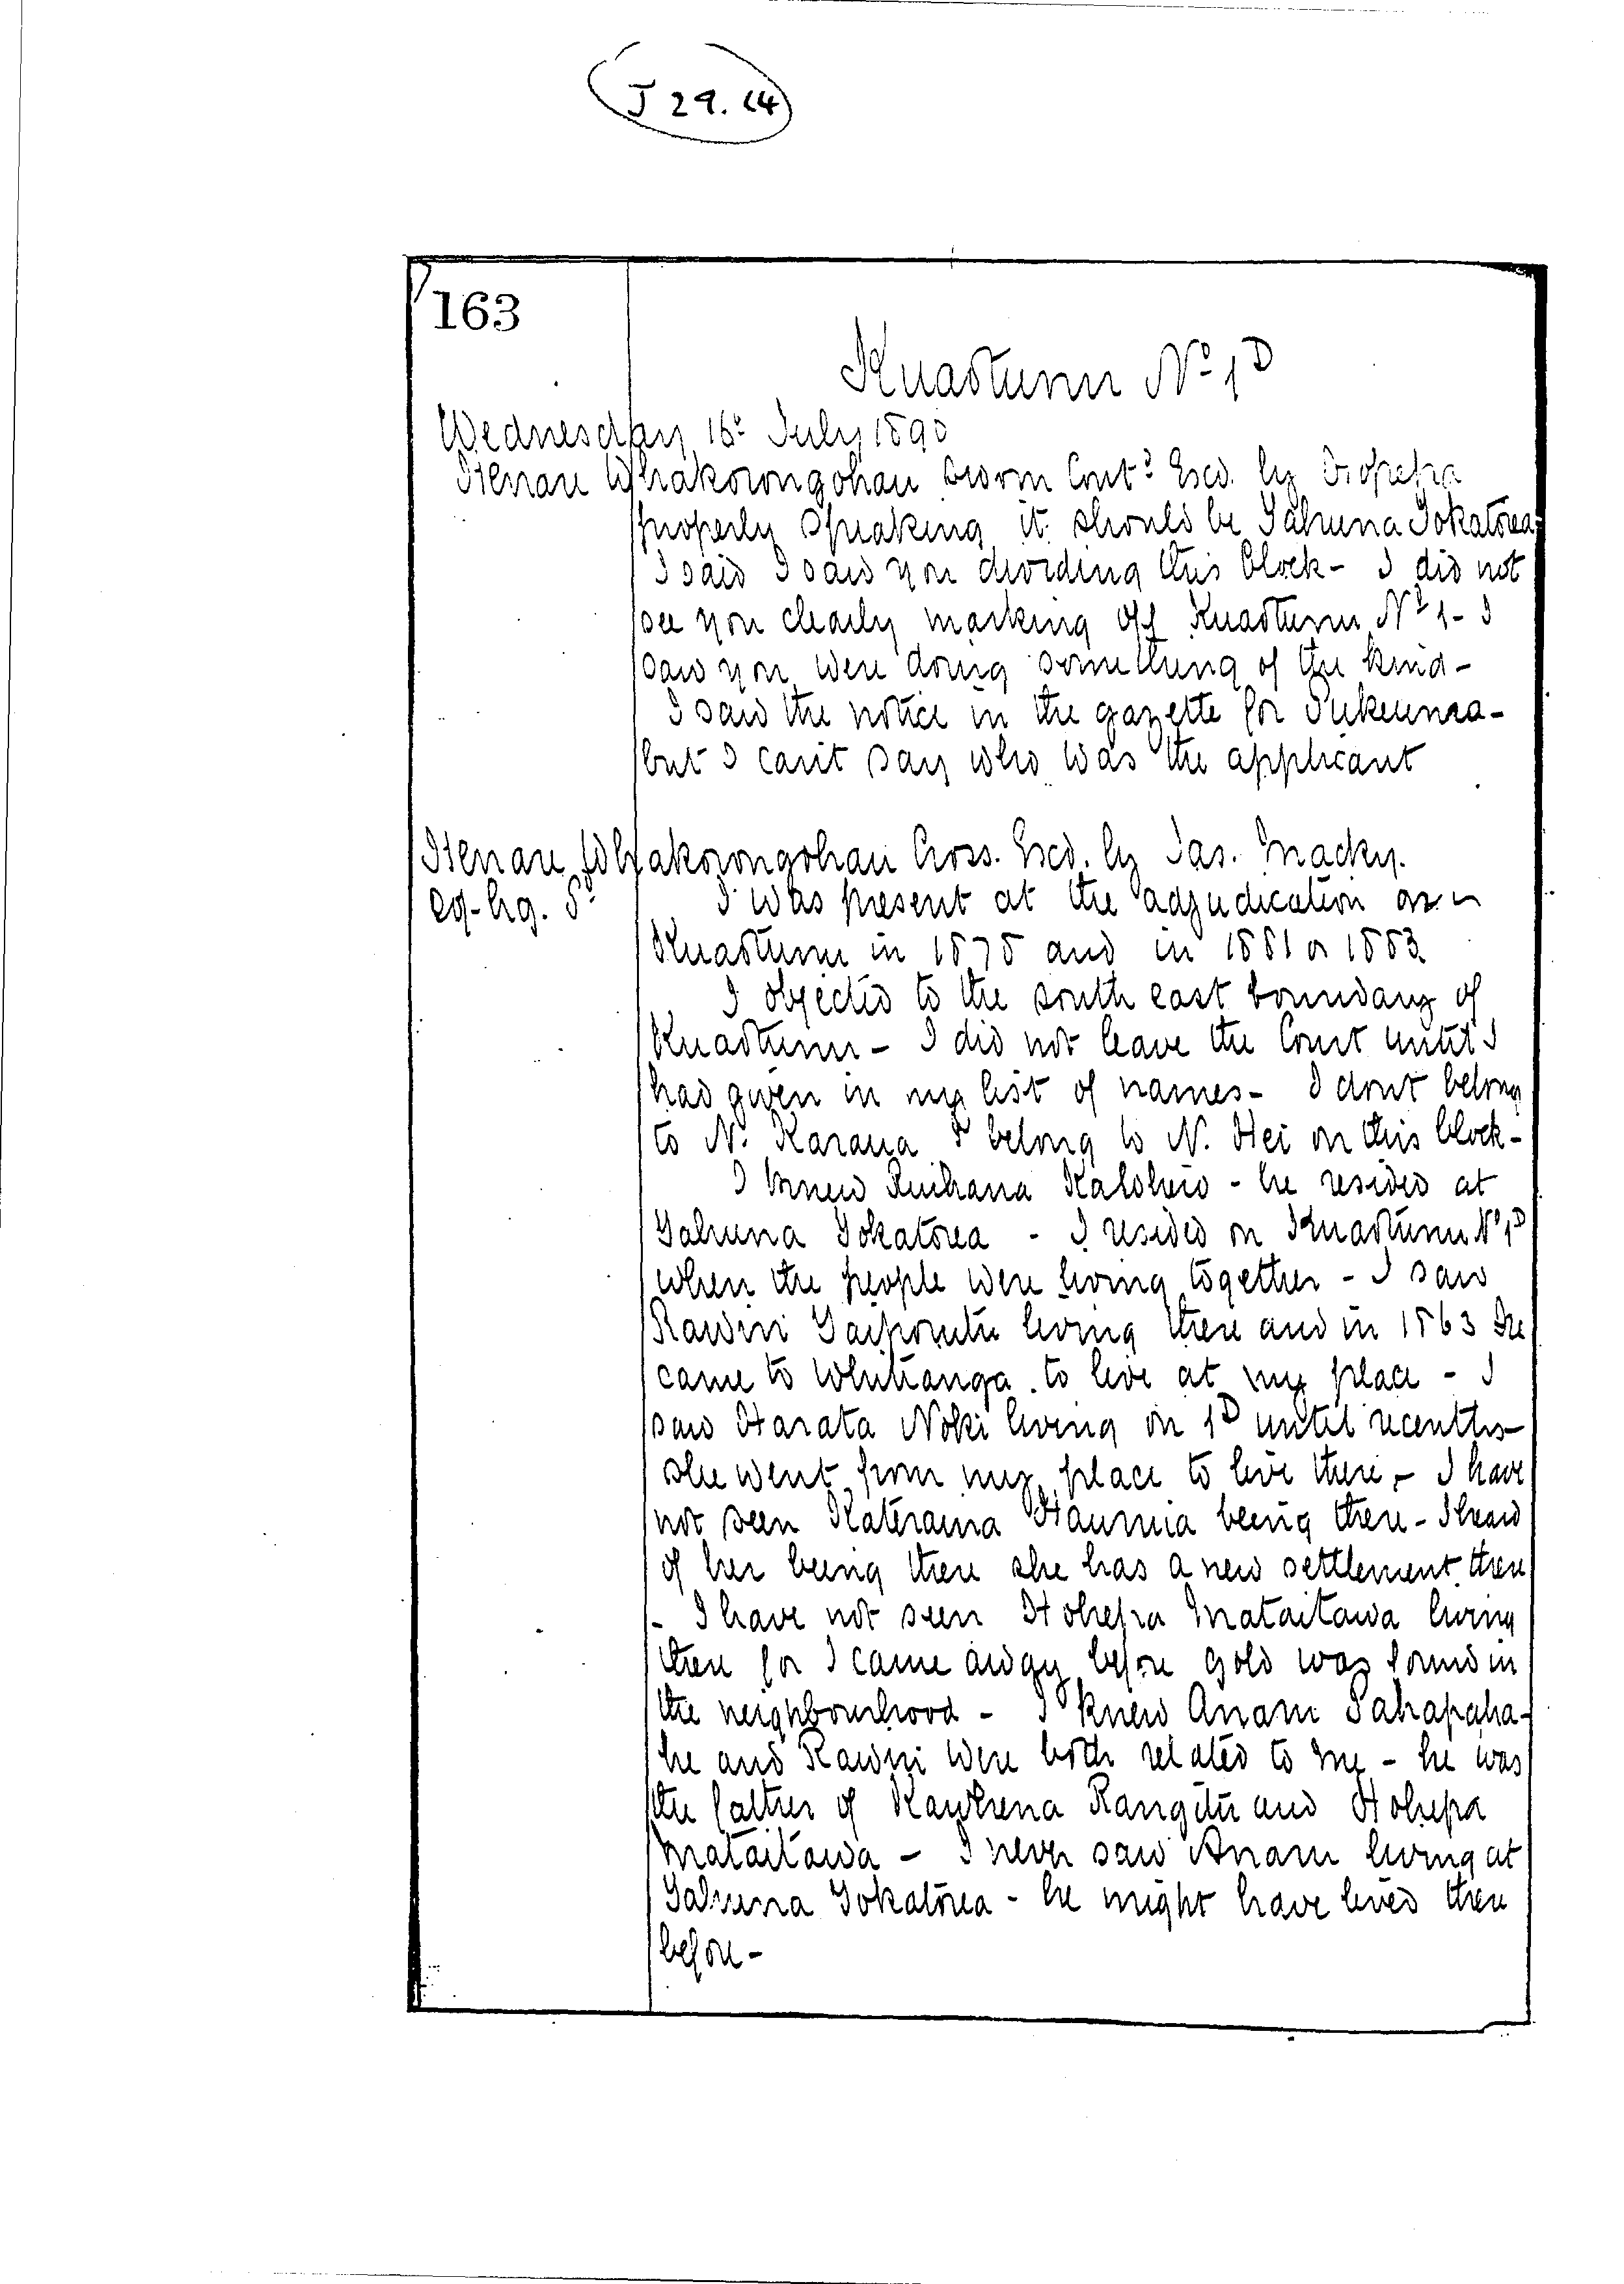 J 29. 14
163
Kuaotunu No 1D
Wednesday 16: July 1890
Henare Whakorongohau sworn Cont: Exd. by Piopepa
properly speaking it should be Tahuna Tokatorea
I said I saw you dividing this block - I did not
see you clearly marking off Kuaotunu No 1 - I
saw you were doing something of the kind -
I saw the notice in the gazette for
but I can't say who was the applicant
Henare Whakorongohau Cross. Exd. by Jas. Macky.
I was present at the adjudication
Kuaotunu in 1878 and in 1881 or 1883.
I objected to the south east boundary of
Kuaotunu - I did not leave the Court until I
had given in my list of names - I dont belong
to N. Karaua I belong to N. Hei on this block -
I knew Ruihana Kawhero - he resided at
Tahuna Tokatorea - I resided on Kuaotunu No 1D
when the people were living together - I saw
Rawiri Taiporutu living there and in 1863 he
came to Whitianga to live at my place - I
saw Harata Noki living on 1D until recently
she went from my place to live there - I have
not seen Katerama Haumia being there - I heard
of her being there she has a new settlement there
- I have not seen Hohepa Mataitawa living
there for I came away before gold was found in
the neighbourhood - I knew Anaru Pahapaha -
he and Rawiri were both related to me - he was
the father of Kawhena Rangitu and Hohepa
Mataitawa - I never saw Anaru living at
Tahuna Tokatorea - he might have lived there
before -